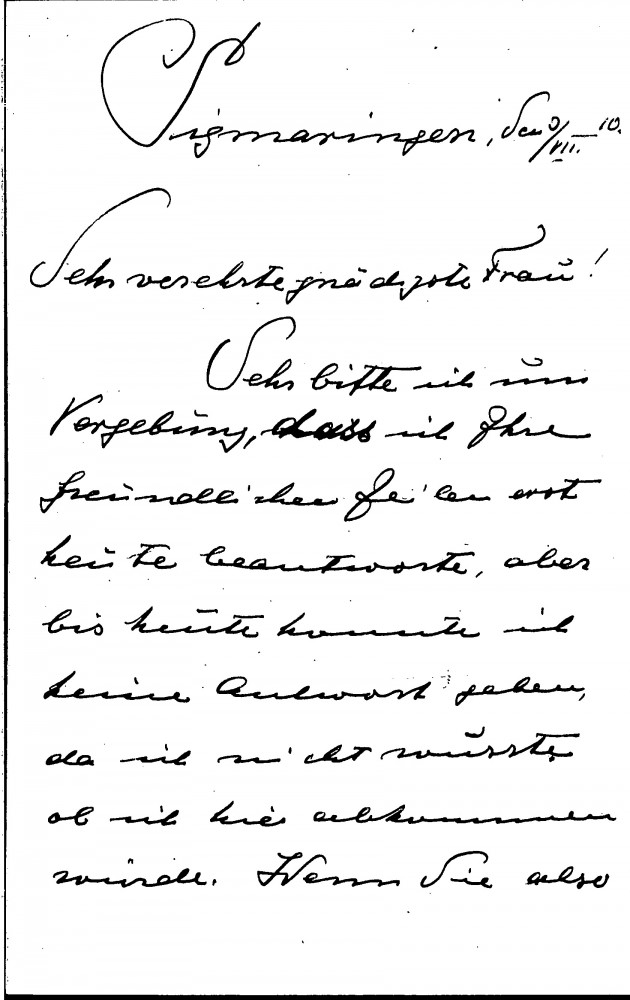 Sigmaringen, den 9/VII. 10.
Sehr verehrte gnädigste Frau!
Sehr bitte ich um
Vergebung, dass ich Ihre
freundlichen Zeilen erst
heute beantworte, aber
bis heute konnte ich
keine Antwort geben,
da ich nicht wusste,
ob ich hier abkommen
würde. Wenn Sie also